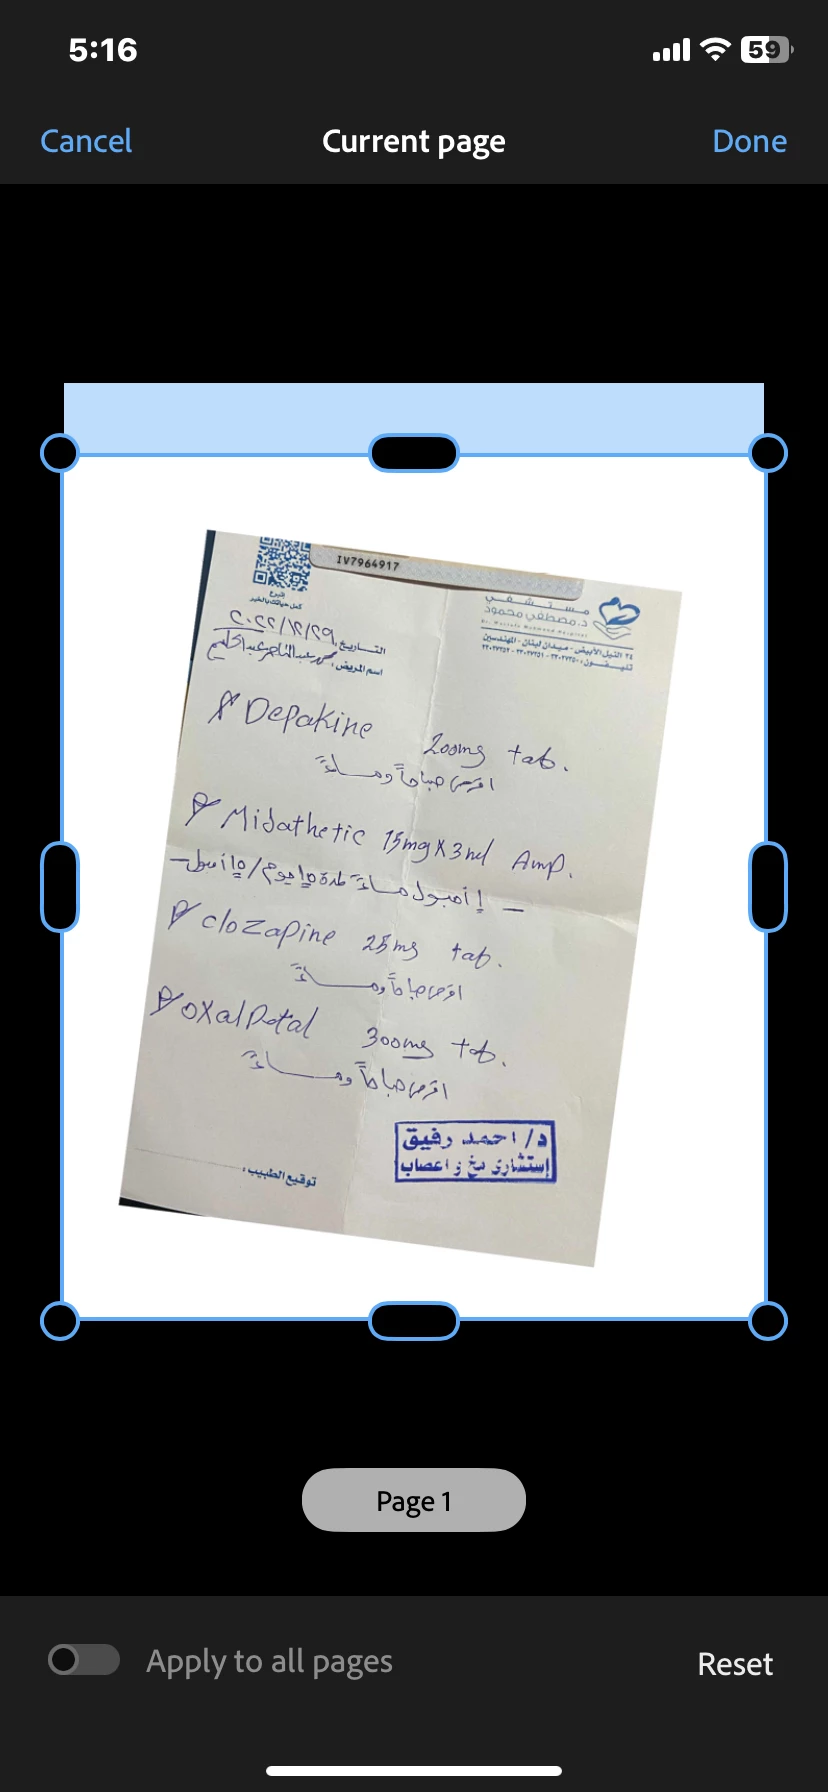 5:16
59
Cancel
Current page
Done
IV7964917
مستشفى
د. مصطفى محمود
Dr. Mostafa Mahmoud Hospital
٢٤ النيل الأبيض - ميدان لبنان - المهندسين
التاريخ: ٢٠٢٢/١٢/٢٩
اسم المريض: محمد عبدالناصر عبدالحليم
Depakine 200mg tab.
اقرص صباحاً ومساءً
Midathetic 15mg X 3ml Amp.
clozapine 25mg tab.
اقرص صباحاً ومساءً
oxalpetal 300mg tab.
اقرص صباحاً ومساءً
د/ احمد رفيق
إستشارى مخ و اعصاب
توقيع الطبيب:
Page 1
Apply to all pages
Reset